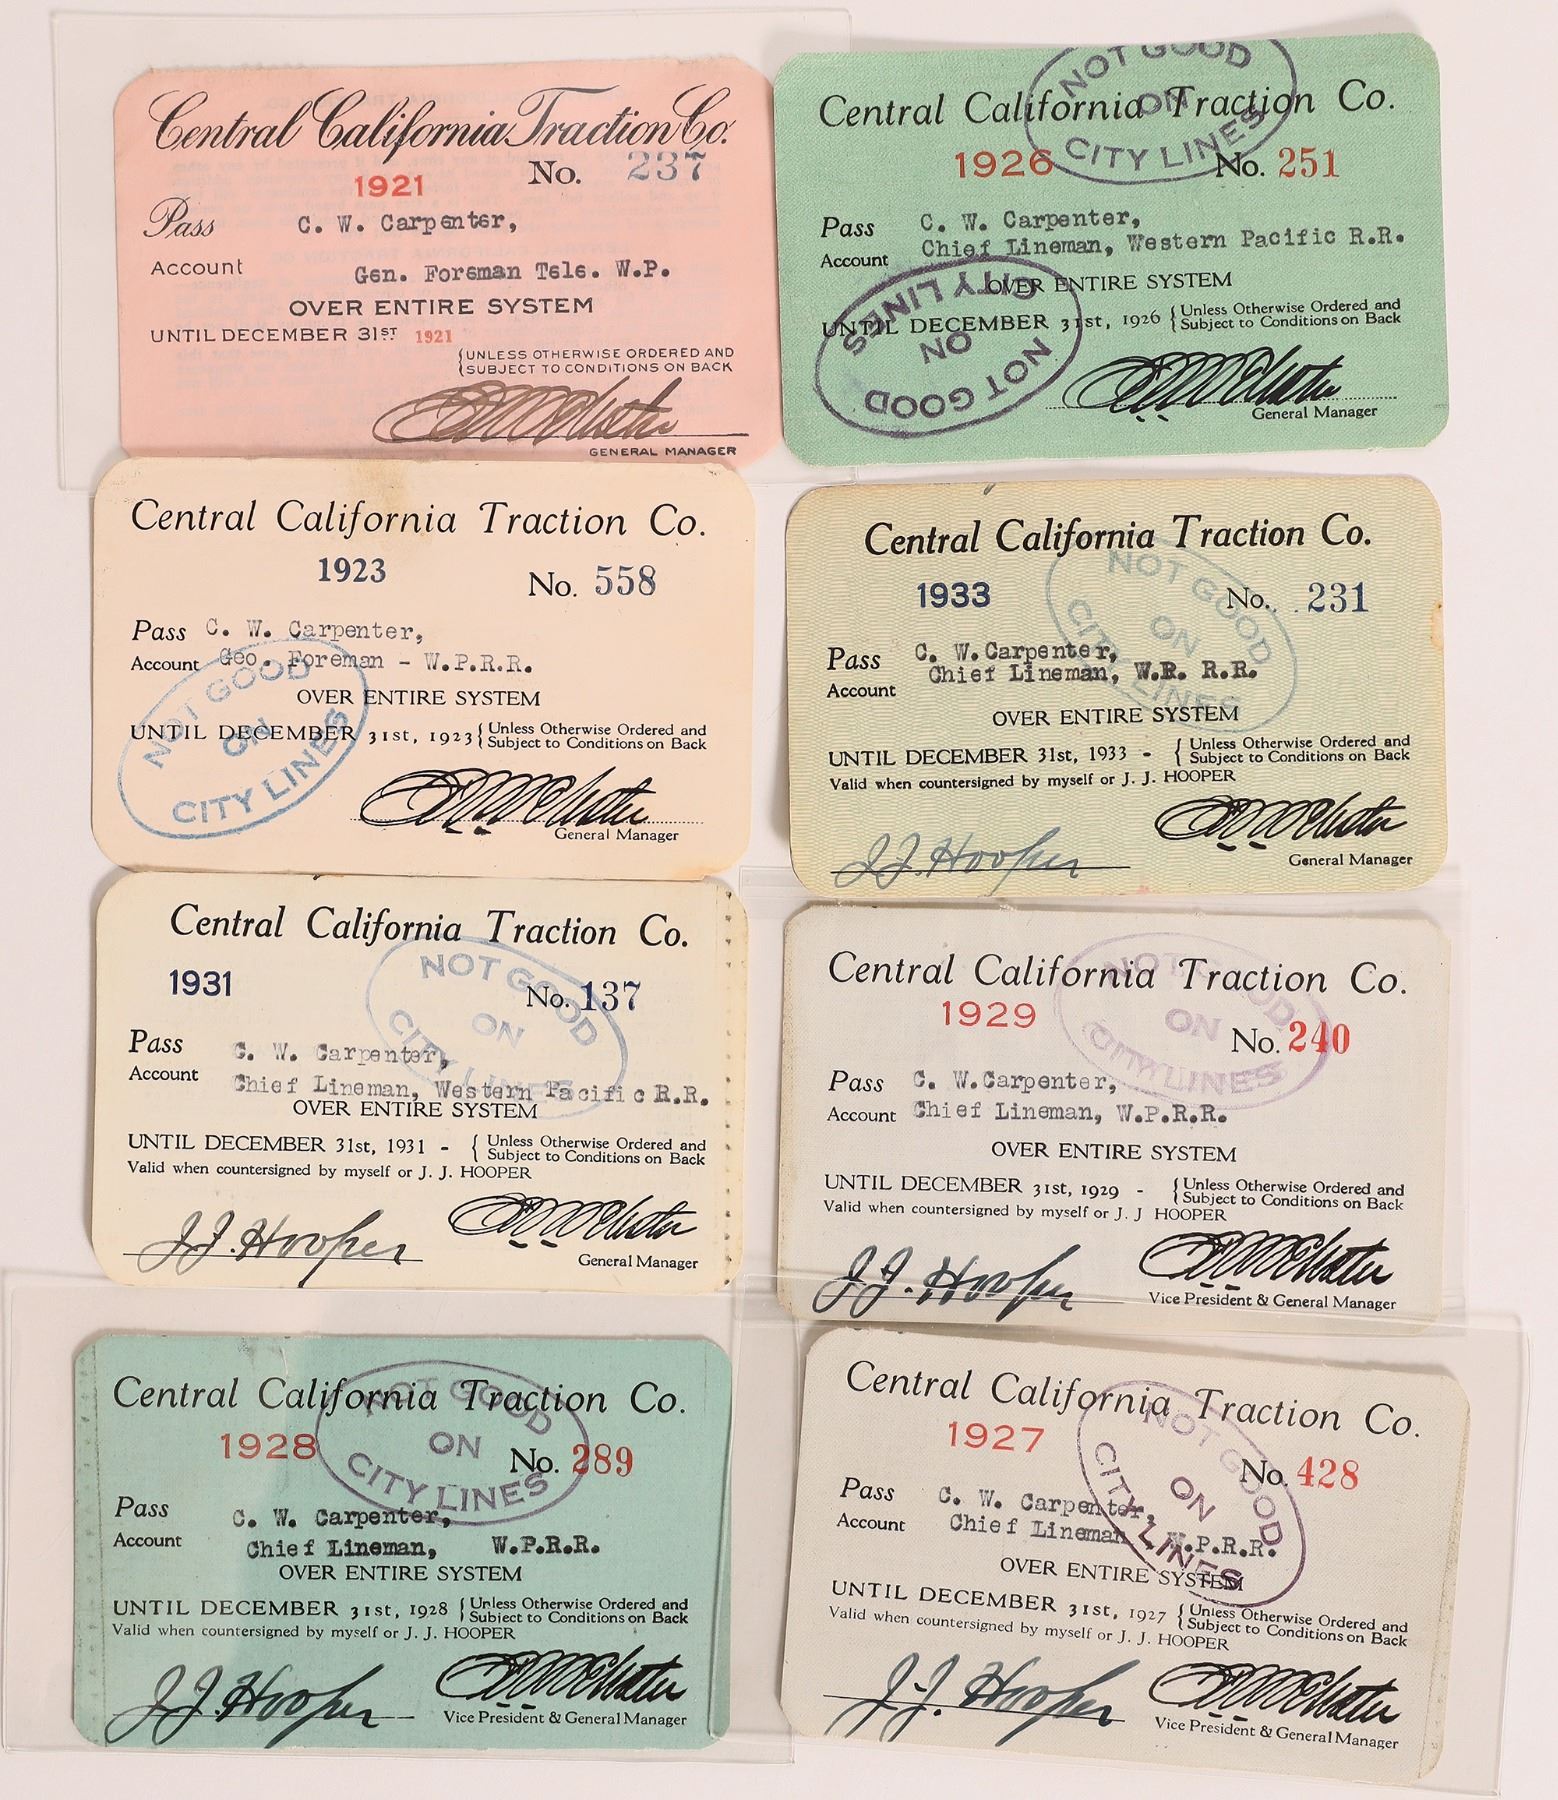 Central California Traction Co.
1921
No. 237
Pass C. W. Carpenter,
Account Gen. Foreman Tele. W.P.
OVER ENTIRE SYSTEM
UNTIL DECEMBER 31ST 1921
{UNLESS OTHERWISE ORDERED AND
{SUBJECT TO CONDITIONS ON BACK
GENERAL MANAGER
Central California Traction Co.
1926 No. 251
Pass C. W. Carpenter,
Account Chief Lineman, Western Pacific R.R.
OVER ENTIRE SYSTEM
UNTIL DECEMBER 31st, 1926 {Unless Otherwise Ordered and
Subject to Conditions on Back
General Manager
NOT GOOD
ON
CITY LINES
NOT GOOD
ON
CITY LINES
Central California Traction Co.
1923 No. 558
Pass C. W. Carpenter,
Account Geo. Foreman - W.P.R.R.
OVER ENTIRE SYSTEM
UNTIL DECEMBER 31st, 1923 {Unless Otherwise Ordered and
Subject to Conditions on Back
General Manager
NOT GOOD
ON
CITY LINES
Central California Traction Co.
1933 No. 231
Pass C. W. Carpenter,
Account Chief Lineman, W.P. R.R.
OVER ENTIRE SYSTEM
UNTIL DECEMBER 31st, 1933 - {Unless Otherwise Ordered and
Subject to Conditions on Back
Valid when countersigned by myself or J. J. HOOPER
J. J. Hooper
General Manager
NOT GOOD
ON
CITY LINES
Central California Traction Co.
1931 No. 137
Pass C. W. Carpenter,
Account Chief Lineman, Western Pacific R.R.
OVER ENTIRE SYSTEM
UNTIL DECEMBER 31st, 1931 - {Unless Otherwise Ordered and
Subject to Conditions on Back
Valid when countersigned by myself or J. J. HOOPER
J. J. Hooper
General Manager
NOT GOOD
ON
CITY LINES
Central California Traction Co.
1929
No. 240
Pass C. W. Carpenter,
Account Chief Lineman, W.P.R.R.
OVER ENTIRE SYSTEM
UNTIL DECEMBER 31st, 1929 - {Unless Otherwise Ordered and
Subject to Conditions on Back
Valid when countersigned by myself or J. J HOOPER
J. J. Hooper
Vice President & General Manager
NOT GOOD
ON
CITY LINES
Central California Traction Co.
1928 No. 289
Pass C. W. Carpenter,
Account Chief Lineman, W.P.R.R.
OVER ENTIRE SYSTEM
UNTIL DECEMBER 31st, 1928 {Unless Otherwise Ordered and
Subject to Conditions on Back
Valid when countersigned by myself or J. J. HOOPER
J. J. Hooper
Vice President & General Manager
NOT GOOD
ON
CITY LINES
Central California Traction Co.
1927
No. 428
Pass C. W. Carpenter,
Account Chief Lineman, W.P.R.R.
OVER ENTIRE SYSTEM
UNTIL DECEMBER 31st, 1927 {Unless Otherwise Ordered and
Subject to Conditions on Back
Valid when countersigned by myself or J. J. HOOPER
J. J. Hooper
Vice President & General Manager
NOT GOOD
ON
CITY LINES